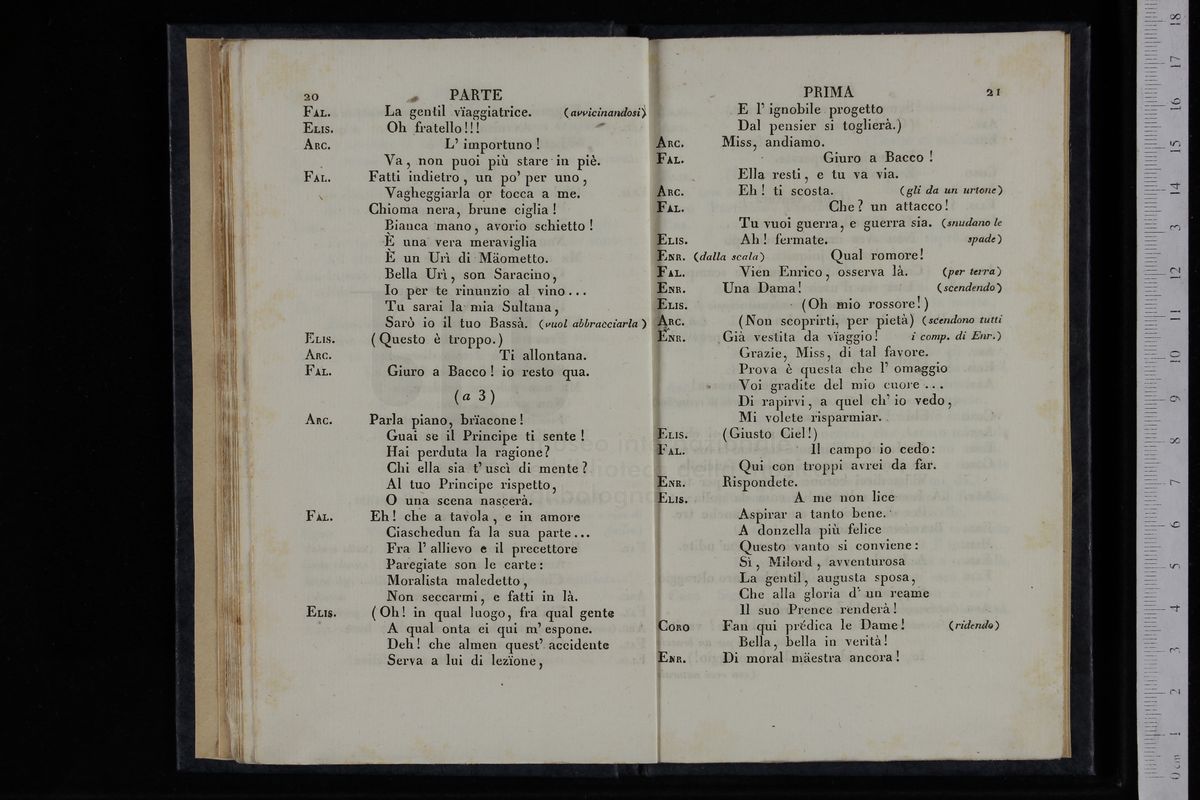 20 PARTE
FAL. La gentil vïaggiatrice. (avvicinandosi)
ELIS. Oh fratello!!!
ARC. L' importuno!
Va, non puoi più stare in piè.
FAL. Fatti indietro, un po' per uno,
Vagheggiarla or tocca a me.
Chioma nera, brune ciglia!
Bianca mano, avorio schietto!
È una vera meraviglia
È un Urì di Mäometto.
Bella Urì, son Saracino,
Io per te rinunzio al vino...
Tu sarai la mia Sultana,
Sarò io il tuo Bassà. (vuol abbracciarla)
ELIS. (Questo è troppo.)
ARC. Ti allontana.
FAL. Giuro a Bacco! io resto qua.
(a 3)
ARC. Parla piano, brïacone!
Guai se il Principe ti sente!
Hai perduta la ragione?
Chi ella sia t' uscì di mente?
Al tuo Principe rispetto,
O una scena nascerà.
FAL. Eh! che a tavola, e in amore
Ciaschedun fa la sua parte...
Fra l' allievo e il precettore
Paregiate son le carte:
Moralista maledetto,
Non seccarmi, e fatti in là.
ELIS. (Oh! in qual luogo, fra qual gente
A qual onta ei qui m' espone.
Deh! che almen quest' accidente
Serva a lui di lezïone,
PRIMA 21
E l' ignobile progetto
Dal pensier si toglierà.)
ARC. Miss, andiamo.
FAL. Giuro a Bacco!
Ella resti, e tu va via.
ARC. Eh! ti scosta. (gli da un urtone)
FAL. Che? un attacco!
Tu vuoi guerra, e guerra sia. (snudano le
ELIS. Ah! fermate. spade)
ENR. (dalla scala) Qual romore!
FAL. Vien Enrico, osserva là. (per terra)
ENR. Una Dama! (scendendo)
ELIS. (Oh mio rossore!)
ARC. (Non scoprirti, per pietà) (scendono tutti
ENR. Già vestita da vïaggio! i comp. di Enr.)
Grazie, Miss, di tal favore.
Prova è questa che l' omaggio
Voi gradite del mio cuore...
Di rapirvi, a quel ch' io vedo,
Mi volete risparmiar.
ELIS. (Giusto Ciel!)
FAL. Il campo io cedo:
Qui con troppi avrei da far.
ENR. Rispondete.
ELIS. A me non lice
Aspirar a tanto bene.
A donzella più felice
Questo vanto si conviene:
Sì, Milord, avventurosa
La gentil, augusta sposa,
Che alla gloria d' un reame
Il suo Prence renderà!
CORO Fan qui prédica le Dame! (ridendo)
Bella, bella in verità!
ENR. Di moral mäestra ancora!
0 cm 1 2 3 4 5 6 7 8 9 10 11 12 13 14 15 16 17 18